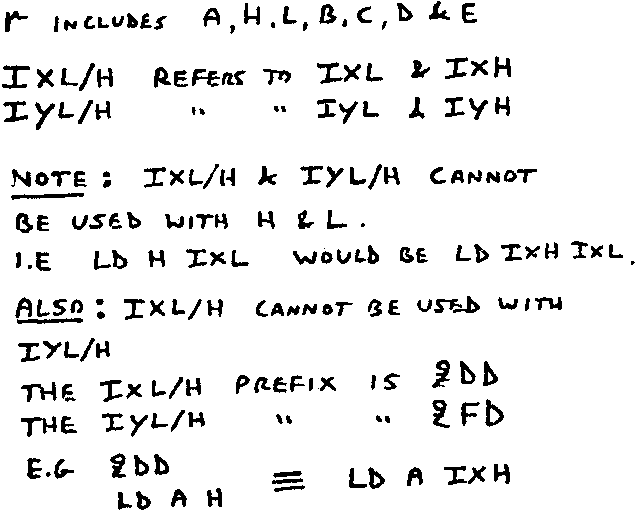 r INCLUDES A, H, L, B, C, D & E
IXL/H REFERS TO IXL & IXH
IYL/H " " IYL & IYH
NOTE: IXL/H & IYL/H CANNOT
BE USED WITH H & L.
I.E LD H IXL WOULD BE LD IXH IXL.
ALSO: IXL/H CANNOT BE USED WITH
IYL/H
THE IXL/H PREFIX IS &DD
THE IYL/H " " &FD
E.G &DD
LD A H ≡ LD A IXH